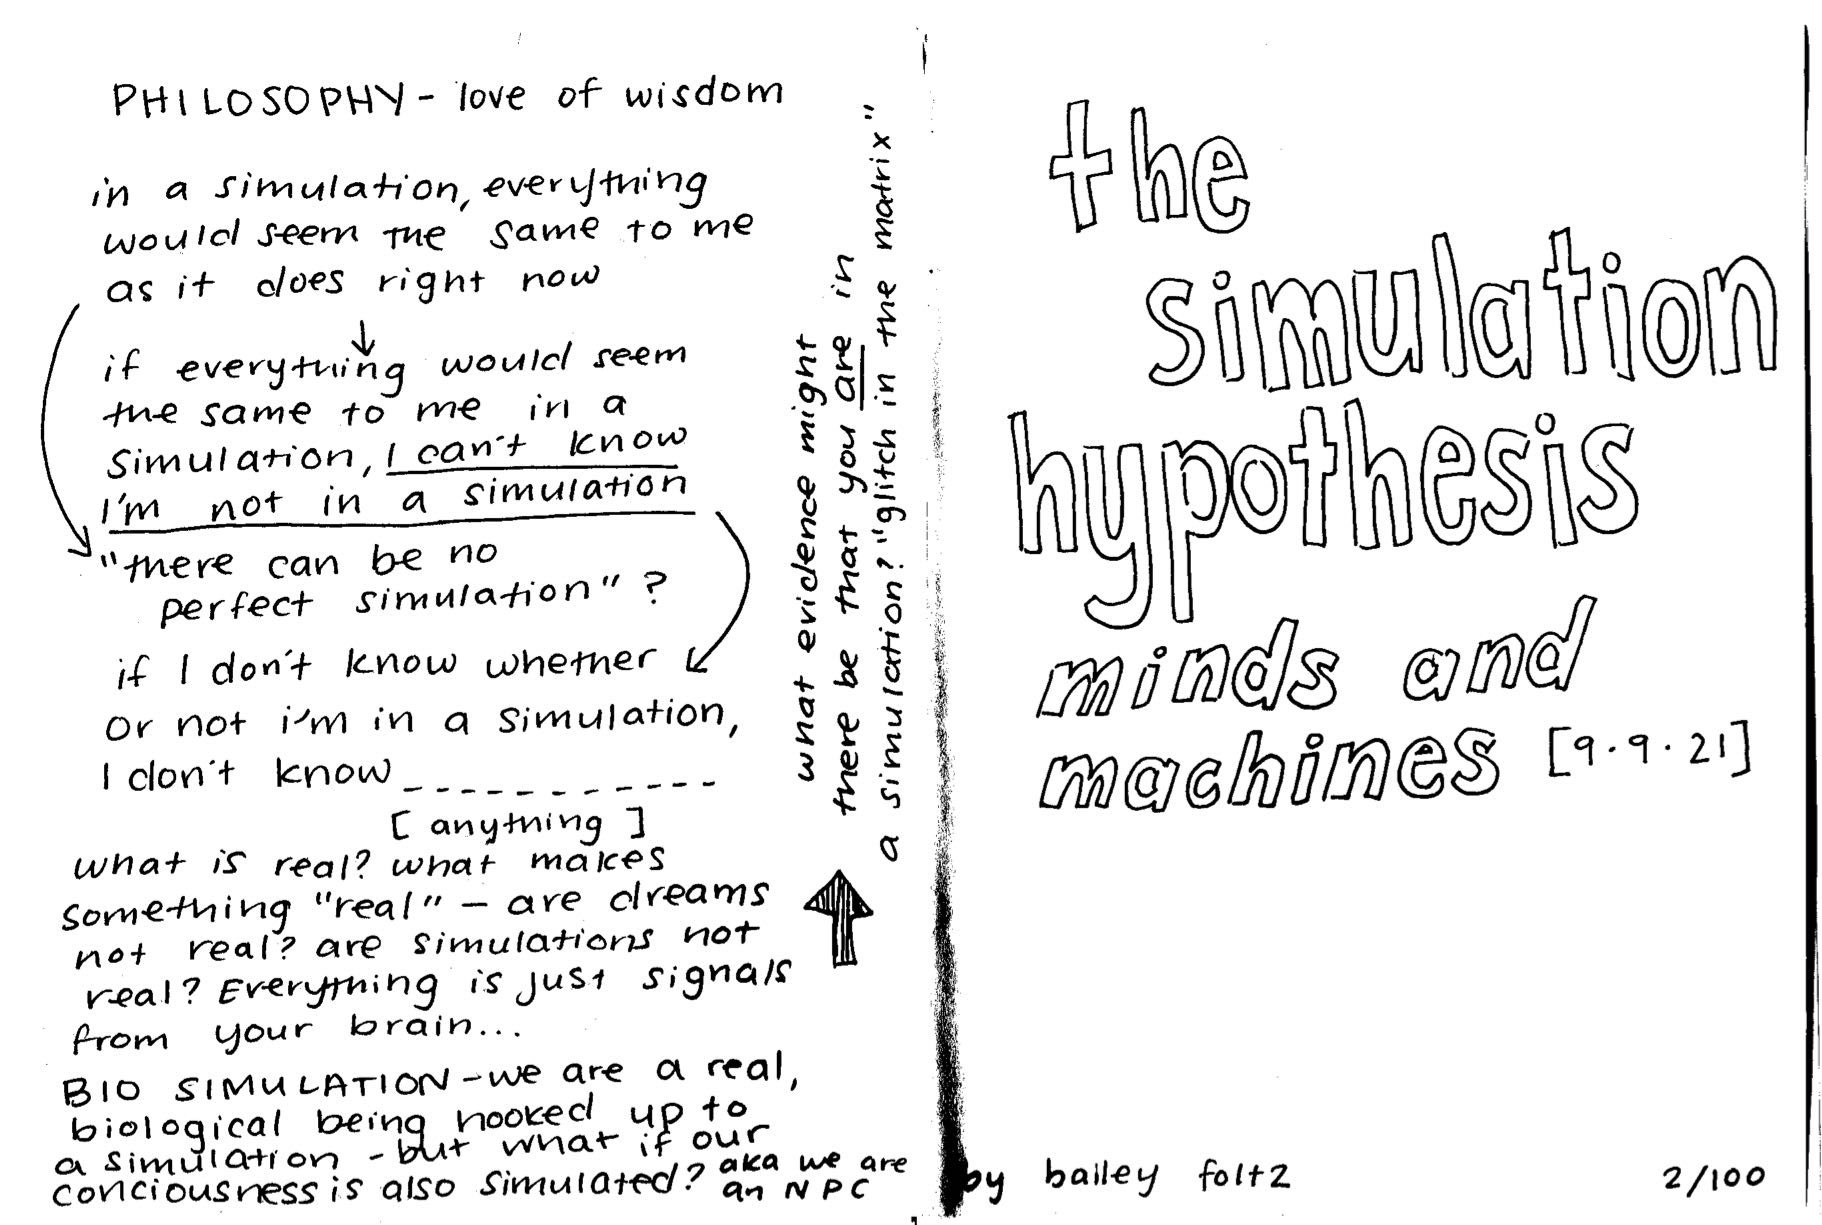 PHILOSOPHY - love of wisdom
in a simulation, everything
would seem the same to me
as it does right now
if everything would seem
the same to me in a
simulation, I can't know
I'm not in a simulation
"there can be no
perfect simulation" ?
if I don't know whether
or not i'm in a simulation,
I don't know _ _ _ _ _ _ _ _ _ _ _
[ anything ]
what is real? what makes
something "real" - are dreams
not real? are simulations not
real? Everything is just signals
from your brain...
BIO SIMULATION - we are a real,
biological being hooked up to
a simulation - but what if our
conciousness is also simulated? aka we are
an NPC
what evidence might
there be that you are in
a simulation? "glitch in the matrix"
the
simulation
hypothesis
minds and
machines [9.9.21]
by bailey foltz
2/100